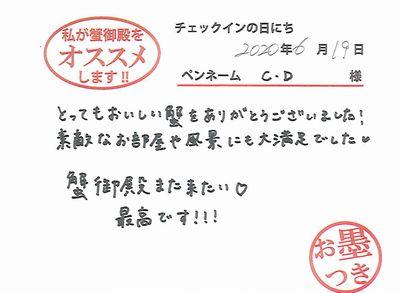 私が蟹御殿を
オススメ
します!!
チェックインの日にち
2020年6月19日
ペンネーム C.D 様
とってもおいしい蟹をありがとうございました!
素敵なお部屋や風景にも大満足でした♥
蟹御殿また来たい♡
最高です!!!
お墨
つき